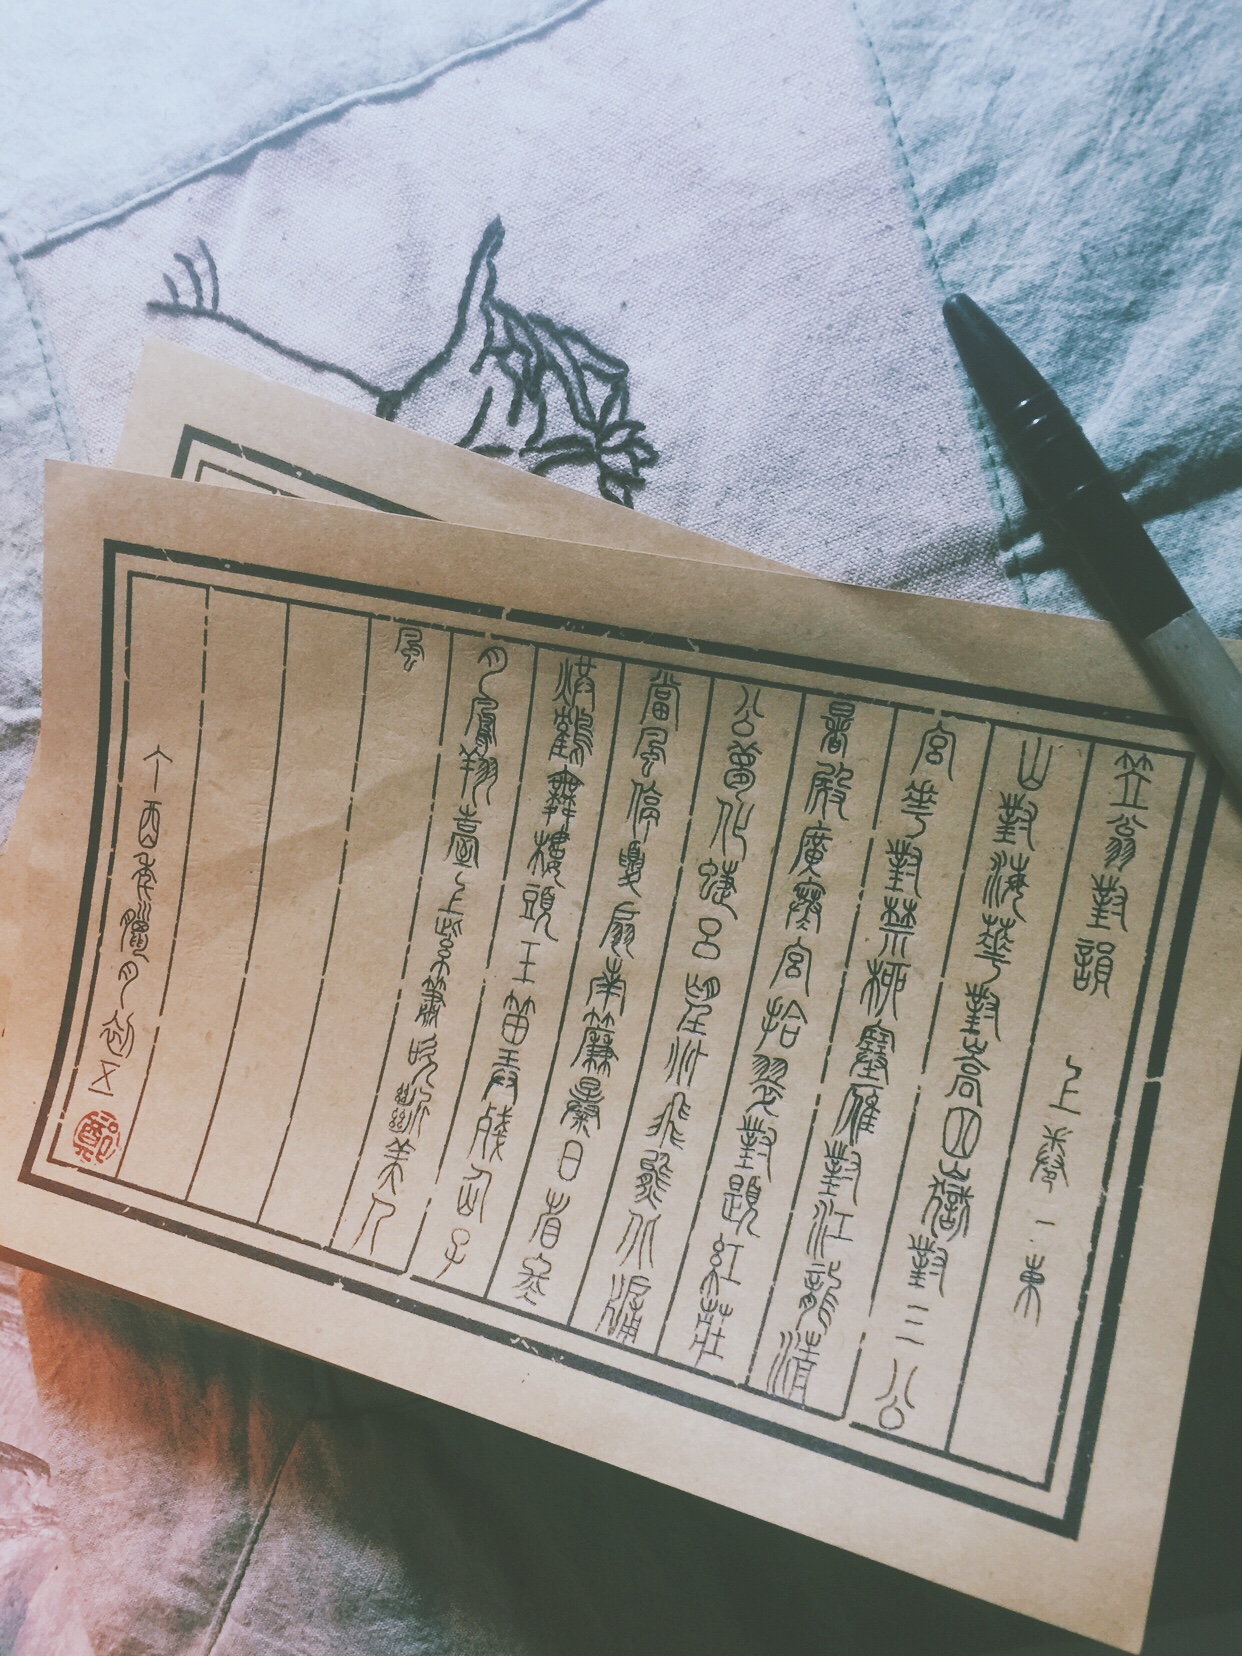 笠翁對韻 上卷 一東
山對海華對嵩四嶽對三公
宮華對禁柳塞雁對江龍清
暑殿廣寒宮拾翠對題紅莊
公夢化蝶呂望兆飛熊北牖
當風停夏扇南簾曝日省冬
烘鶴舞樓頭玉笛弄殘仙子
月鳳翔臺上紫簫吹斷美人
風
丁酉年臘月初五